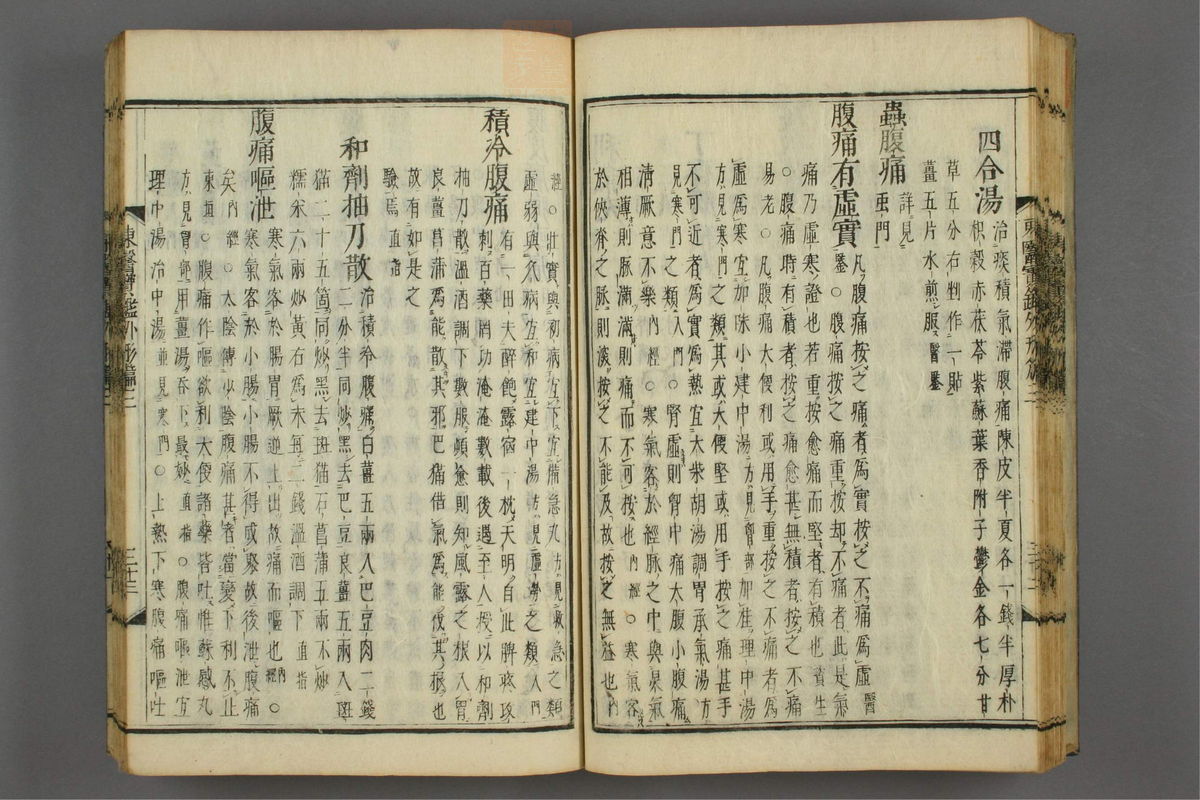 四合湯 治痰積氣滯腹痛陳皮半夏各一錢半厚朴
枳殼赤茯苓紫蘇葉香附子鬱金各七分甘
草五分右剉作一貼
薑五片水煎服 醫鑒
蟲腹痛 詳見虫門
腹痛有虛實 凡腹痛按之痛者爲實按之不痛爲虛 醫
鑒○腹痛按之痛重按却不痛者此是氣
痛乃虛寒證也若重按愈痛而堅者有積也 資生
○腹痛時有積者按之痛愈甚無積者按之不痛
易老○凡腹痛大便利或用手重按之不痛者爲
虛爲寒宜加味小建中湯 方見胷部 加桂理中湯
方見寒門 之類其或大便堅或用手按之痛甚手
不可近者爲實爲熱宜大柴胡湯調胃承氣湯 方
見寒門 之類 入門○腎虛則胷中痛大腹小腹痛
清厥意不樂 內經○寒氣客於經脉之中與炅氣
相薄則脉滿滿則痛而不可按也 內經○寒氣客
於俠脊之脉則深按之不能及故按之無益也 內
經○壯實與初病宜下宜備急丸 方見救急 之類
虛弱與久病宜和宜建中湯 方見虛勞 之類 入門
積冷腹痛 有一田夫醉飽露宿一枕天明自此脾疼攻
刺百藥罔功淹淹數載後遇至人授以和劑
抽刀散溫酒調下數服頓愈則知風露之根入胃
良薑菖蒲爲能散其邪巴猫借氣爲能伐其根也
故有如是之
驗焉 直指
和劑抽刀散 治積冷腹痛白薑五兩入巴豆肉二錢
二分半同炒黑去巴豆良薑五兩入斑
猫二十五箇同炒黑去斑猫石菖蒲五兩不炒
糯米六兩炒黃右爲末每二錢溫酒調下 直指
腹痛嘔泄 寒氣客於腸胃厥逆上出故痛而嘔也 內經○
寒氣客於小腸小腸不得成聚故後泄腹痛
矣 內經○太陰傳少陰腹痛甚者當憂下利不止
東垣○腹痛作嘔欲利大便諸藥皆吐惟蘇感丸
方見胃部 用薑湯呑下最妙 直指○腹痛嘔泄宜
理中湯治中湯 並見寒門○上熱下寒腹痛嘔吐
東醫寶鑑外形篇三
三十三